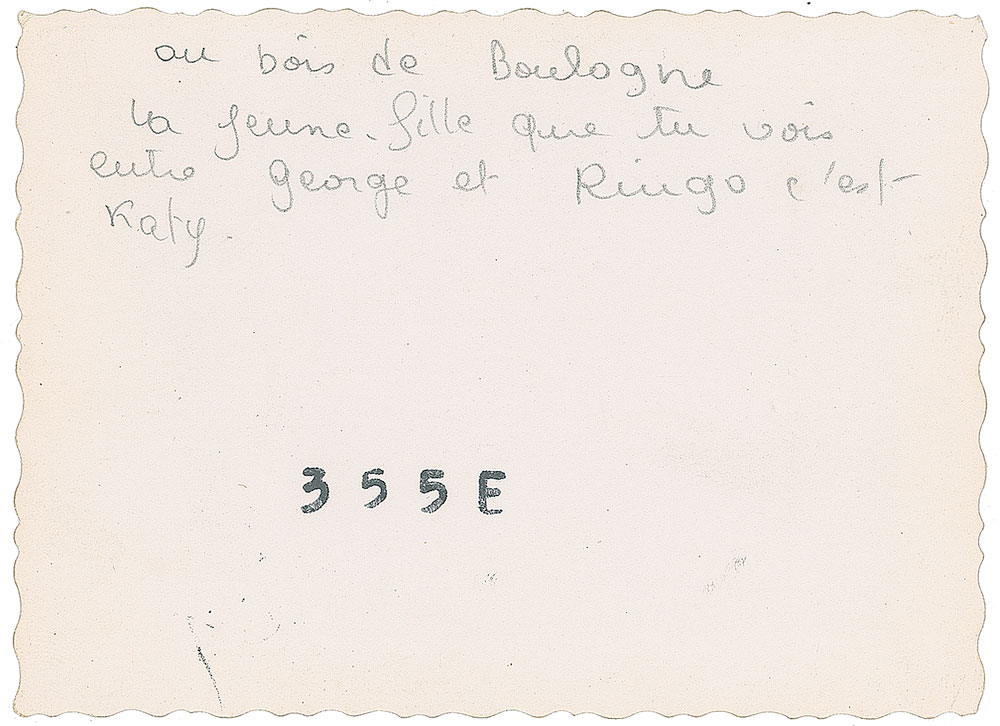 au bois de Boulogne
La jeune-fille que tu vois
entre George et Ringo c'est
Katy.
355E